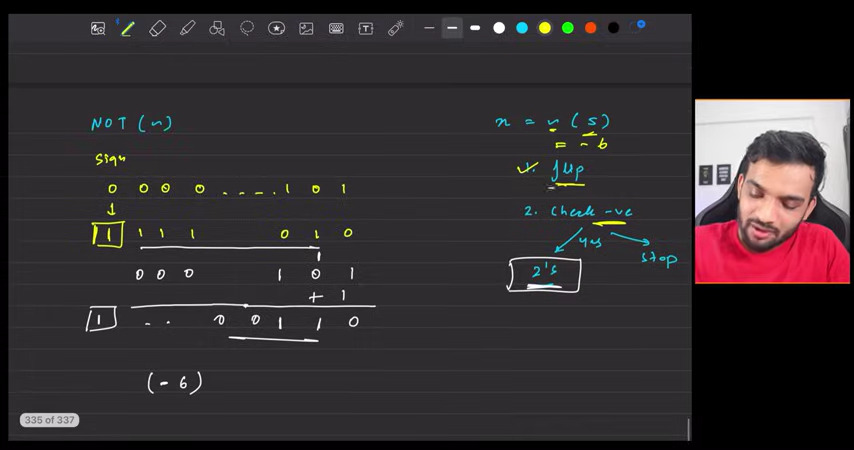 NOT (n)
sign
0 0 0 0 . . . . . . 1 0 1
1 1 1 1 0 1 0
1
0 0 0 1 0 1
+ 1
1 . . 0 0 1 1 0
(- 6)
x = ~ (5)
= - 6
1. flip
2. Check -ve
yes
stop
2's
335 of 337